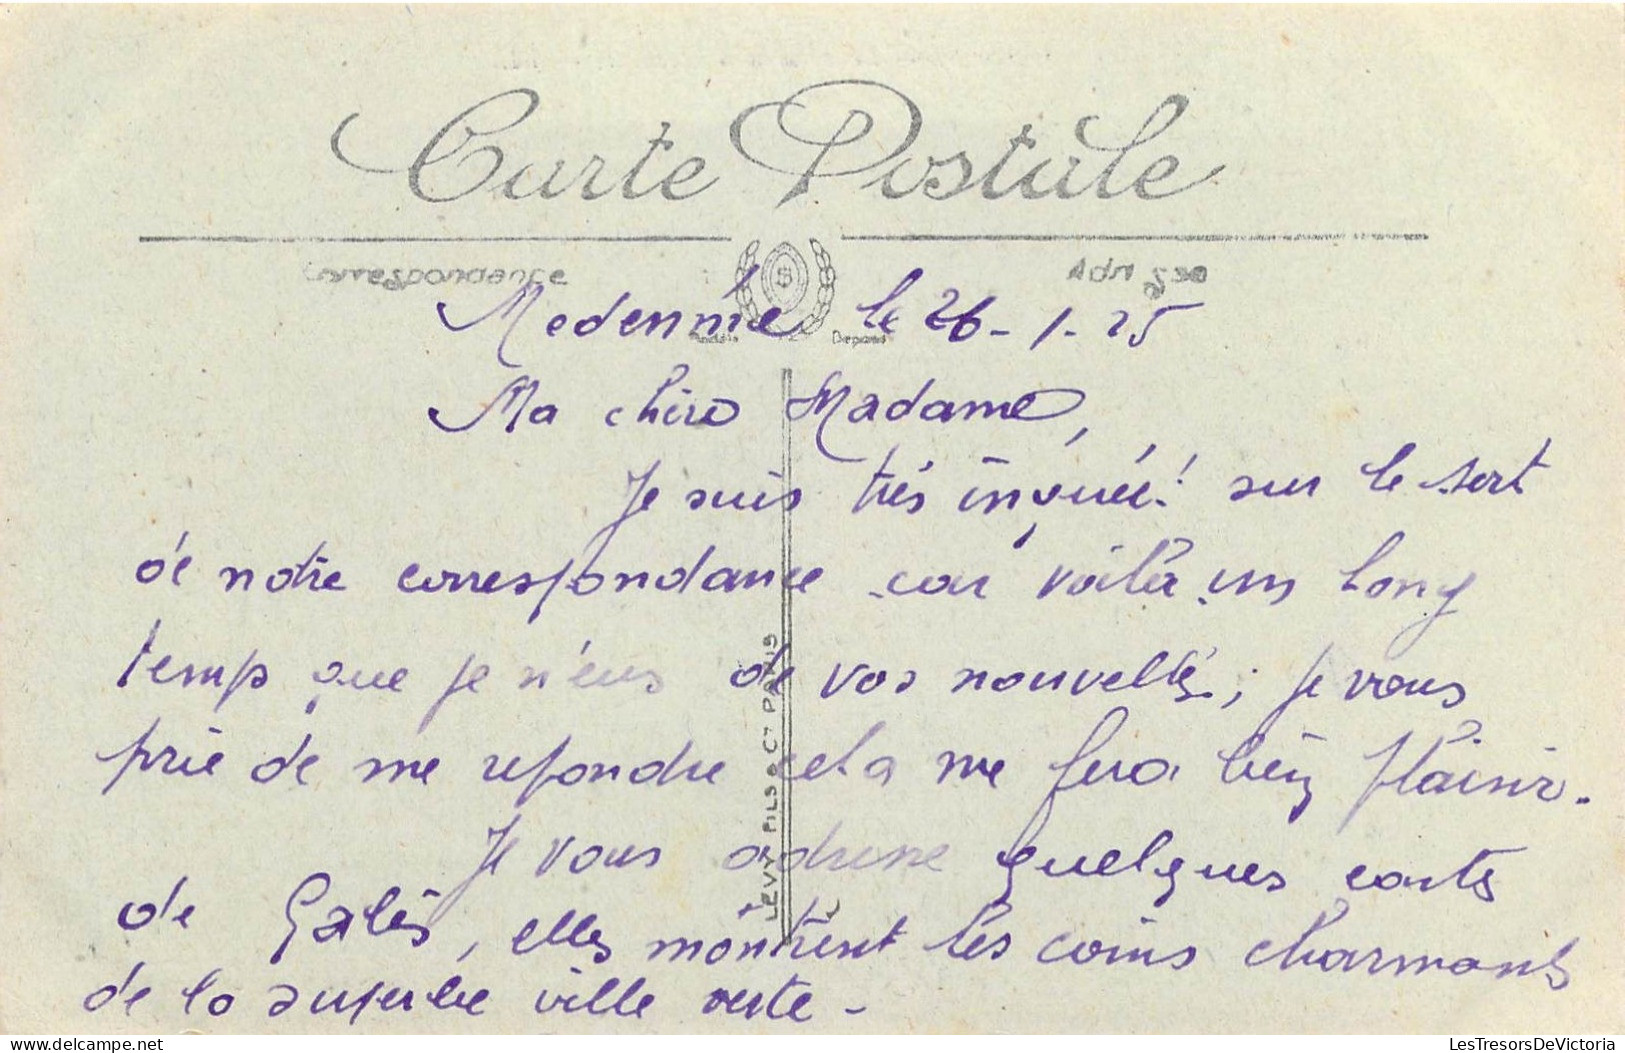 Carte Postale
Correspondance
Adresse
Medenine le 26-1-25
Ma chère Madame,
Je suis très inquiet sur le sort
de notre correspondance car voilà un long
temp que je n'eus de vos nouvelles; je vous
prie de me repondre cela me fera bien plaisir.
Je vous adresse quelques carts
de Gabès, elles montrent les coins charmants
de la superbe ville verte -
LEVY FILS & Cie PARIS
LesTresorsDeVictoria.com
LesTresorsDeVictoria